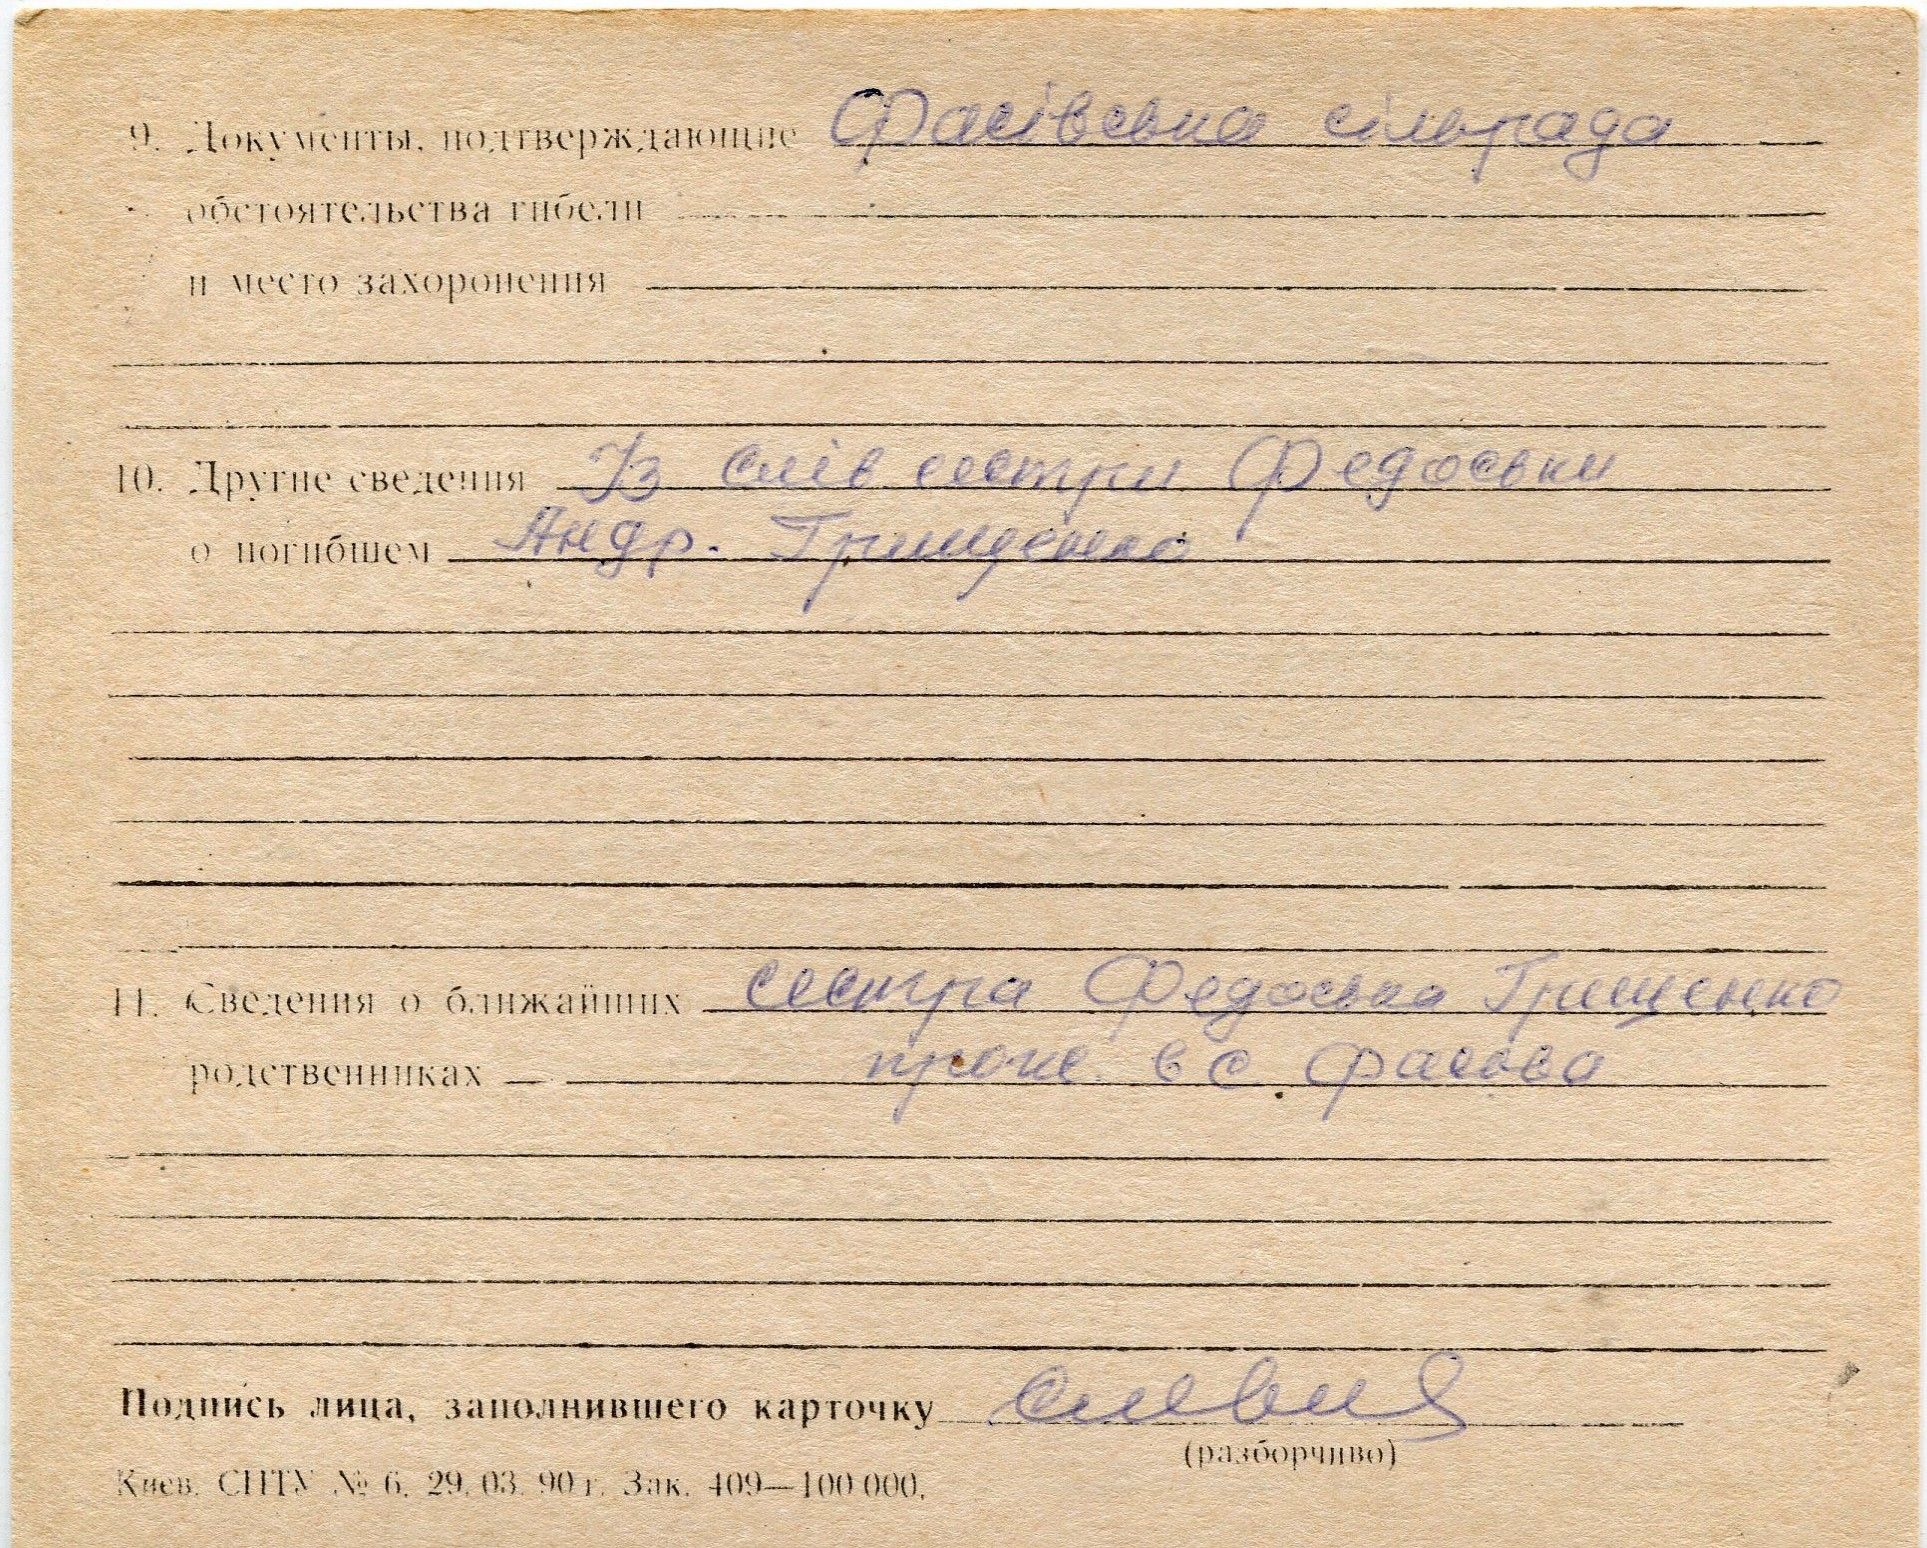 9. Документы, подтверждающие Фасівська сільрада
обстоятельства гибели
и место захоронения
10. Другие сведения Із слів сестри Федоськи
о погибшем Андр. Грищенко
11. Сведения о ближайших сестра Федоська Грищенко
родственниках прож. в с. Фасова
Подпись лица, заполнившего карточку
(разборчиво)
Киев. СПТУ № 6. 29. 03. 90 г. Зак. 409—100 000.